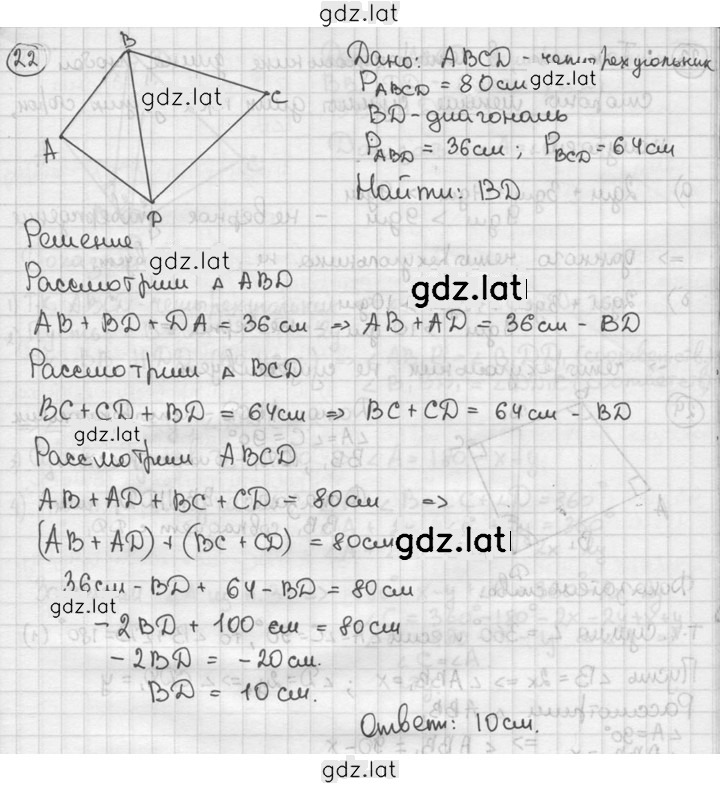 gdz.lat
22
B
gdz.lat
C
A
P
Дано: ABCD - четырехугольник
P_ABCD = 80 см gdz.lat
BD - диагональ
P_ABD = 36 см ; P_BCD = 64 см
Найти: BD
Решение
gdz.lat
Рассмотрим △ ABD
gdz.lat
AB + BD + DA = 36 см ⇒ AB + AD = 36 см - BD
Рассмотрим △ BCD
BC + CD + BD = 64 см ⇒ BC + CD = 64 см - BD
gdz.lat
Рассмотрим ABCD
AB + AD + BC + CD = 80 см ⇒
(AB + AD) + (BC + CD) = 80 см
gdz.lat
36 см - BD + 64 - BD = 80 см
gdz.lat
- 2BD + 100 см = 80 см
- 2BD = - 20 см.
BD = 10 см.
Ответ: 10 см.
gdz.lat